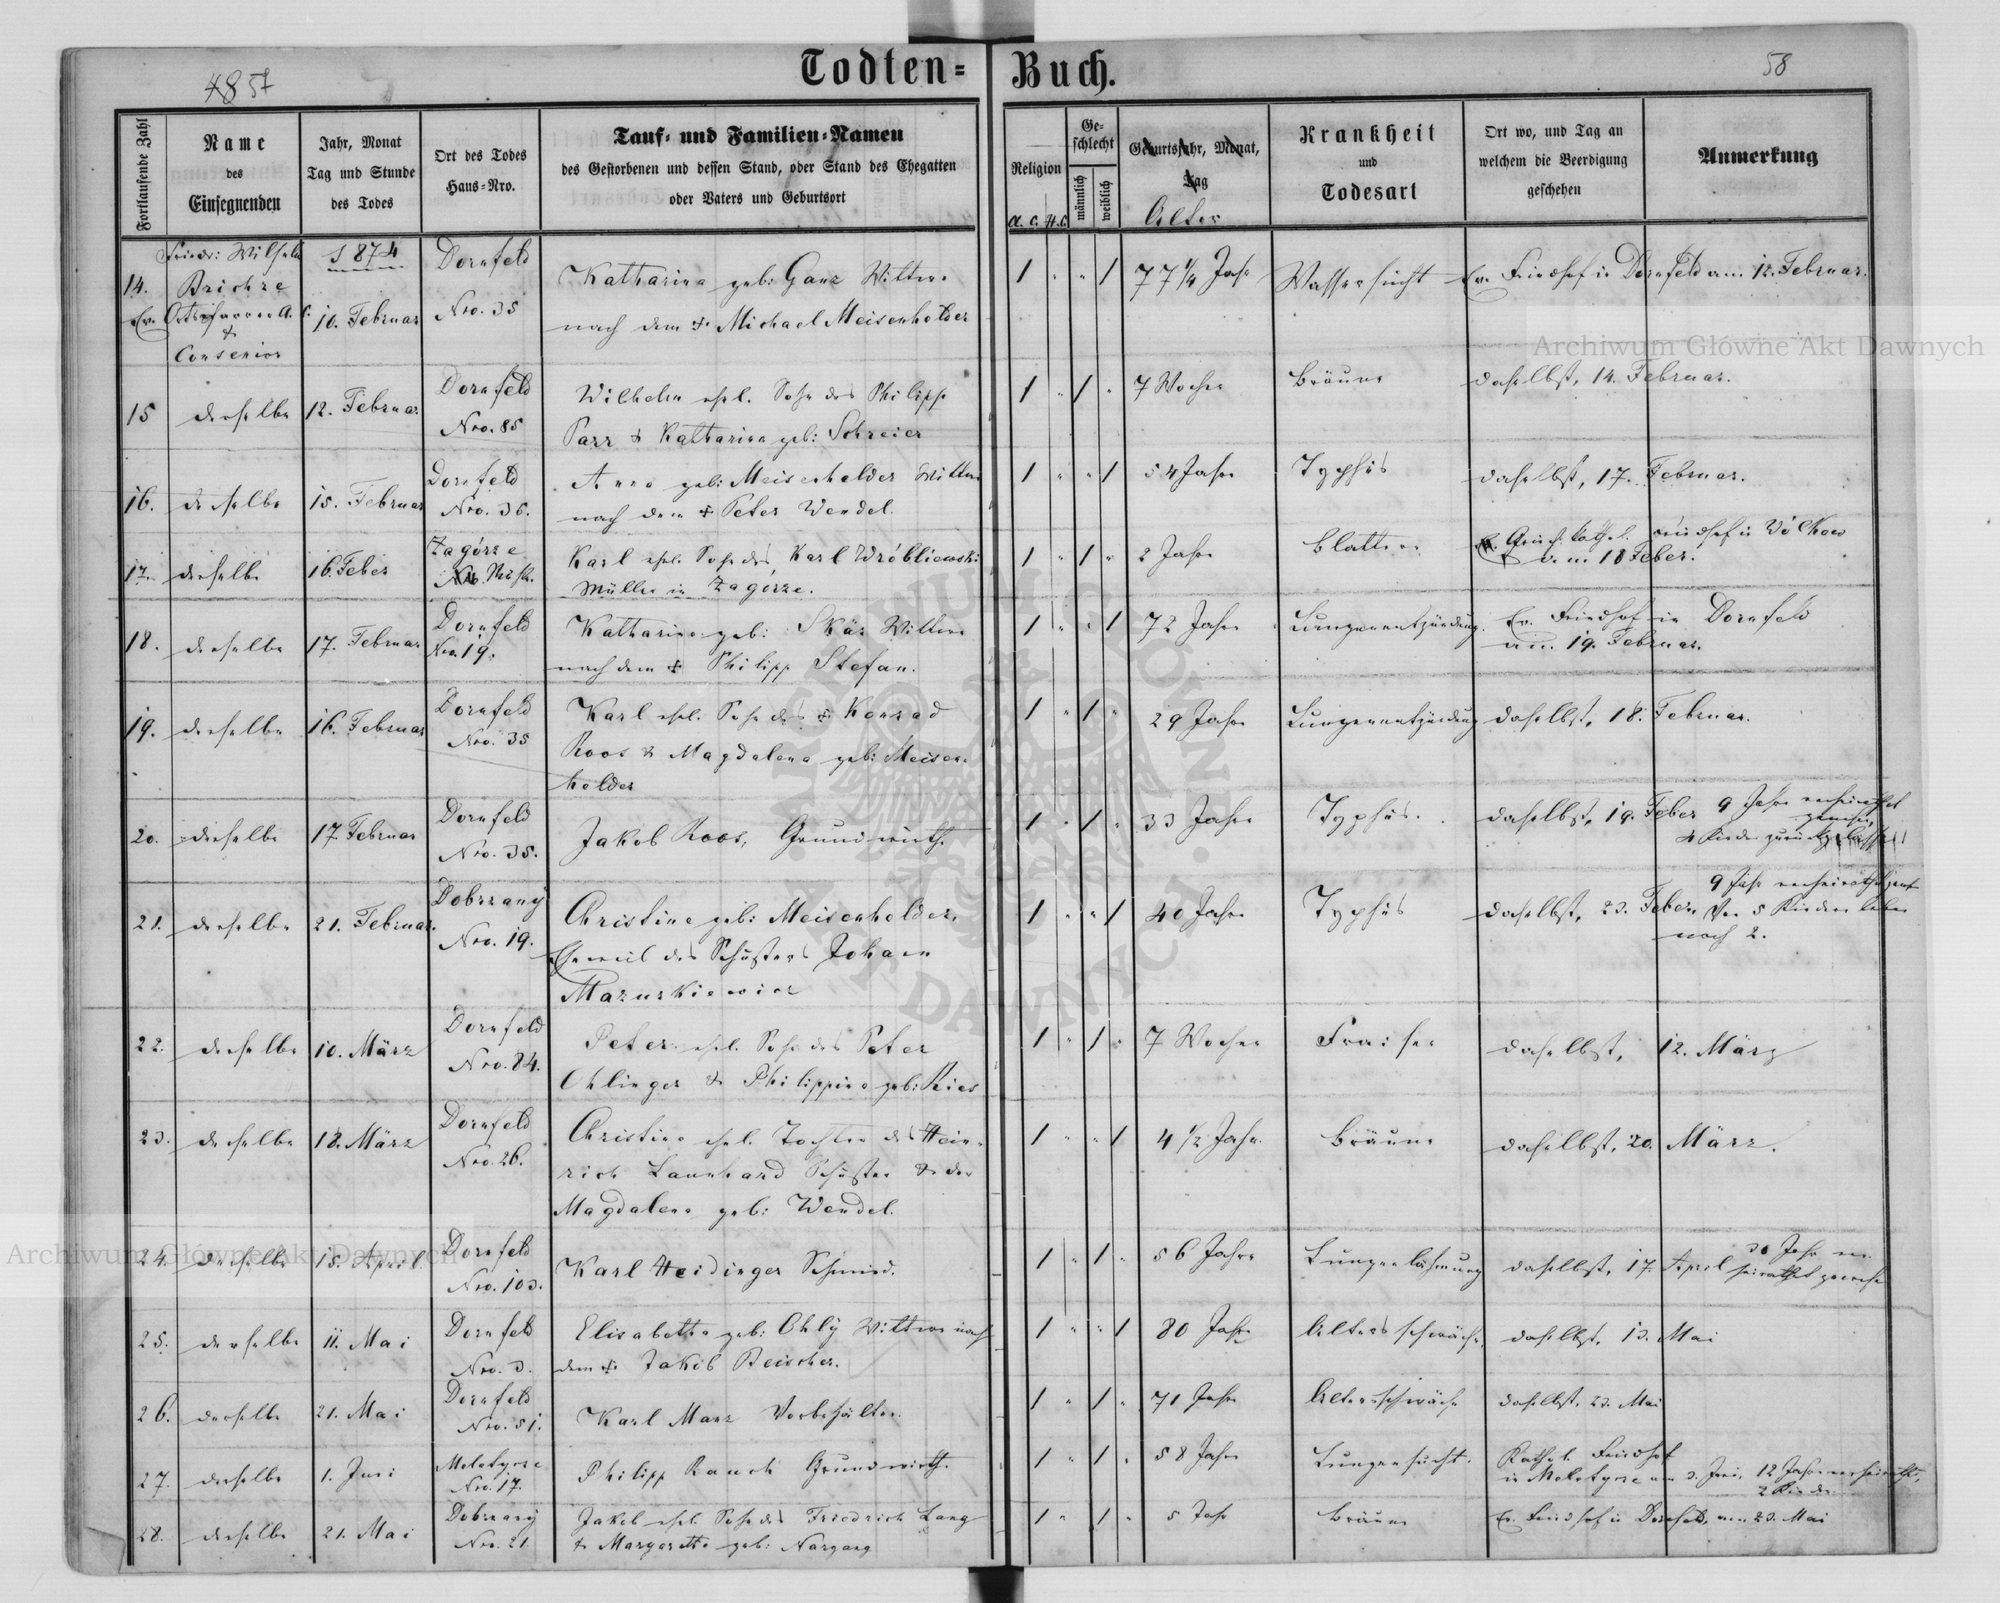 Todten- Buch.
4857
58
Fortlaufende Zahl
Name des Einsegnenden
Jahr, Monat Tag und Stunde des Todes
Ort des Todes Haus-Nro.
Tauf- und Familien-Namen
des Gestorbenen und dessen Stand, oder Stand des Ehegatten
oder Vaters und Geburtsort
Religion
A. C. H. C.
Geschlecht
männlich
weiblich
Geburtsjahr, Monat, Tag
Alter
Krankheit und Todesart
Ort wo, und Tag an welchem die Beerdigung geschehen
Anmerkung
14.
Brichze
Ev. Ortspfarrer A. C.
&
Consenior
1874
10. Februar
Dornfeld
Nro. 35
Katharina geb: Ganz Wittwe
nach dem + Michael Meisenhelder
1 " " 1
77 1/4 Jahr
Wassersucht
Ev. Friedhof in Dornfeld am 12. Februar.
15
derselbe
12. Februar
Dornfeld
Nro. 85
Wilhelm ehel. Sohn des Philipp
Parr & Katharina geb: Schreier
1 " 1 "
7 Wochen
Bräune
daselbst, 14. Februar.
16.
derselbe
15. Februar
Dornfeld
Nro. 36.
Anna geb: Meisenhelder Wittwe
nach dem + Peter Wendel.
1 " " 1
54 Jahre
Typhus
daselbst, 17. Februar.
17.
derselbe
16. Feber
Zagórze
Karl ehel. Sohn des Karl Wróbliewski
Müller in Zagorze.
1 " 1 "
2 Jahre
Blattern
am 18 Feber.
18.
derselbe
17. Februar
Dornfeld
Nro. 19.
Katharina geb: Skär Wittwe
nach dem + Philipp Stefan.
1 " " 1
72 Jahre
Lungenentzündung.
Ev. Friedhof in Dornfeld
am 19. Februar.
19.
derselbe
16. Februar
Dornfeld
Nro. 35
Karl ehel. Sohn des + Konrad
Roos & Magdalena geb: Meisen-
helder
1 " 1 "
29 Jahre
Lungenentzündung
daselbst, 18. Februar.
20.
derselbe
17. Februar
Dornfeld
Nro. 35.
Jakob Roos, Grundwirth.
1 " 1 "
33 Jahre
Typhus.
daselbst, 19. Feber
9 Jahre verheirathet
gewesen,
4 Kinder zurückgelassen
21.
derselbe
21. Februar.
Dobrzany
Nro. 19.
Christine geb: Meisenhelder,
Eheweib des Schusters Johann
Mazurkiewicz
1 " " 1
40 Jahre
Typhus
daselbst, 23. Feber.
9 Jahr verheirathet gewes.
Von 5 Kindern leben
noch 2.
22.
derselbe
10. März
Dornfeld
Nro. 84.
Peter ehel. Sohn des Peter
Ohlinger & Philippine geb: Ries
1 " 1 "
7 Wochen
Fraisen
daselbst, 12. März
23.
derselbe
18. März
Dornfeld
Nro. 26.
Christine ehel. Tochter des Hein-
rich Launhard Schuster & der
Magdalena geb: Wendel.
1 " " 1
4 1/2 Jahr.
Bräune
daselbst, 20. März.
24.
derselbe
15. April
Dornfeld
Nro. 103.
Karl Heidinger Schmied.
1 " 1 "
56 Jahre
Lungenlähmung
daselbst, 17. April
30 Jahr ver-
heirathet gewesen
25.
derselbe
11. Mai
Dornfeld
Nro. 3.
Elisabetha geb: Ohly Wittwe nach
dem + Jakob Beischer.
1 " " 1
80 Jahre
Altersschwäche,
daselbst, 13. Mai
26.
derselbe
21. Mai
Dornfeld
Nro. 51.
Karl Manz Vorbehälter.
1 " 1 "
71 Jahre
Altersschwäche
daselbst, 23. Mai
27.
derselbe
1. Juni
Nro. 17.
Philipp Rauch Grundwirth.
1 " 1 "
58 Jahre
Lungensucht.
Kathol. Friedhof
am 3. Juni.
12 Jahre verheirathet,
2 Kinder
28.
derselbe
21. Mai
Dobrzany
Nro. 21
Jakob ehel. Sohn des Friedrich Lang
& Margaretha geb: Nargang
1 " 1 "
5 Jahr
Bräune
Ev. Friedhof in Dornfeld, am 23. Mai
Archiwum Główne Akt Dawnych
Archiwum Główne Akt Dawnych
ARCHIWUM GŁÓWNE AKT DAWNYCH